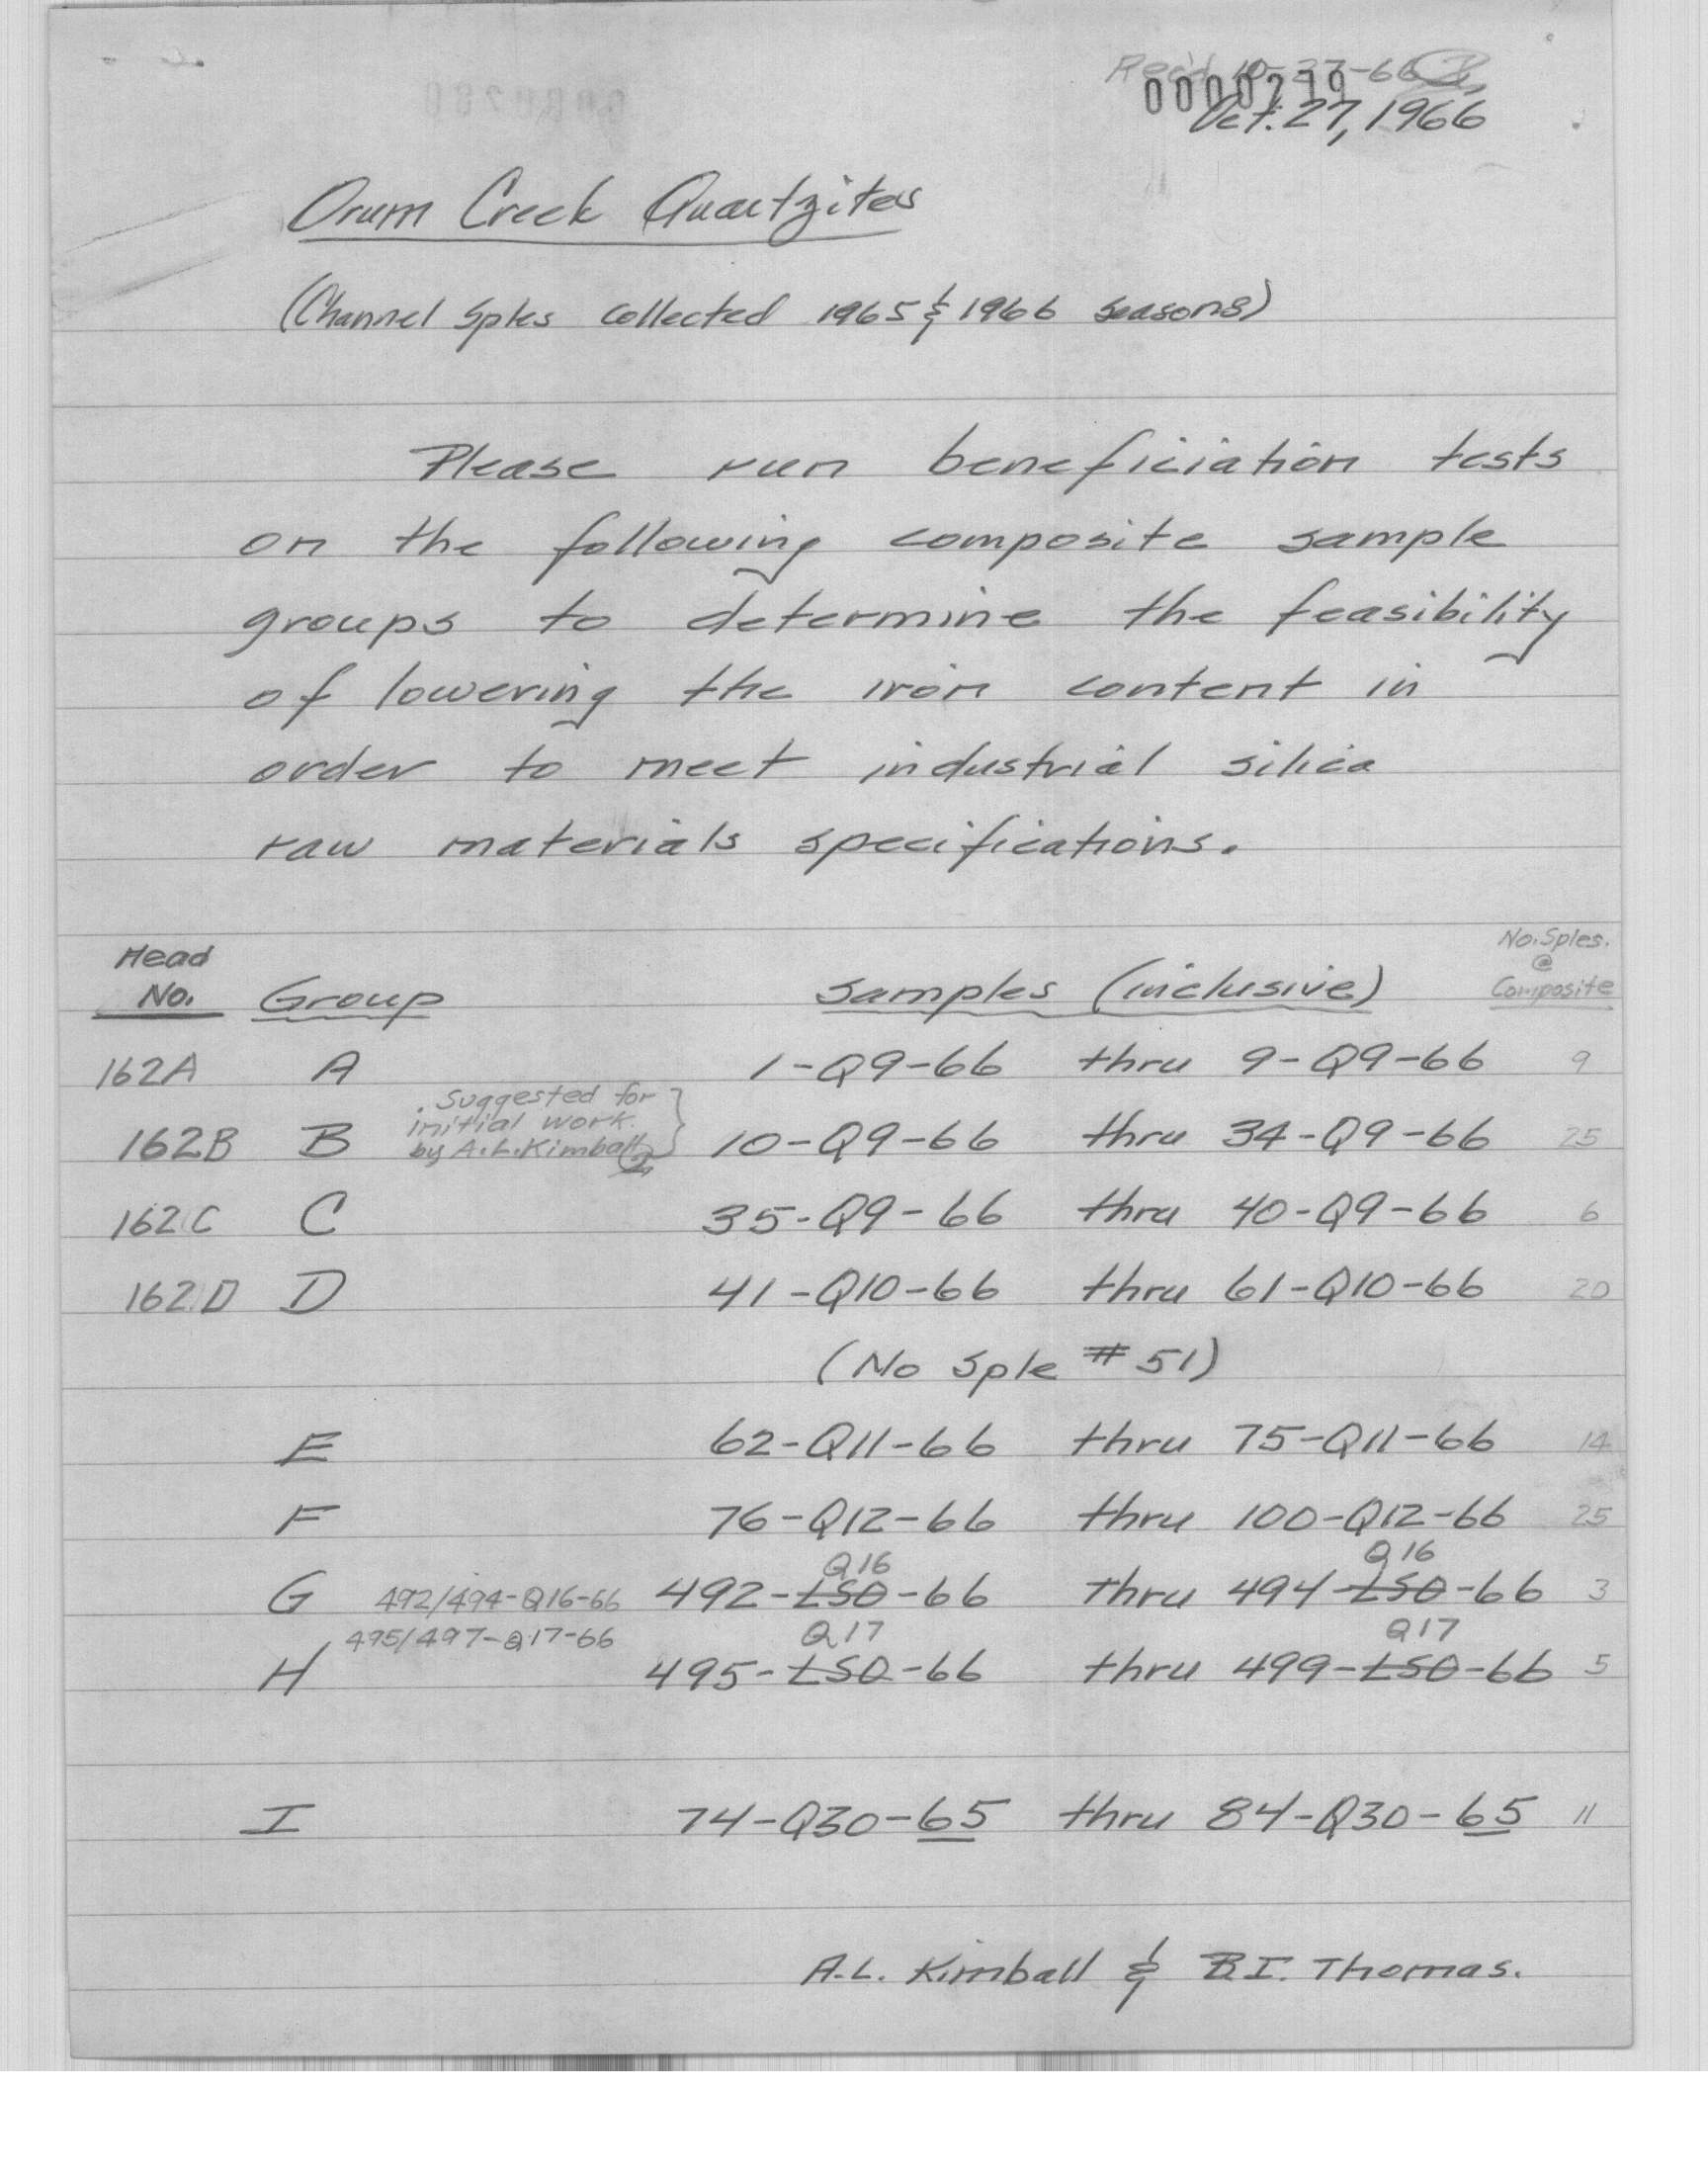 Rec'd 10-27-66
0000279
Oct. 27, 1966
Orum Creek Quartzites
(Channel Sples collected 1965 & 1966 seasons)
Please run beneficiation tests
on the following composite sample
groups to determine the feasibility
of lowering the iron content in
order to meet industrial silica
raw materials specifications.
Head No. Group Samples (inclusive) No. Sples. @ Composite
162A A 1-Q9-66 thru 9-Q9-66 9
Suggested for
initial work
by A.L. Kimball
162B B 10-Q9-66 thru 34-Q9-66 25
162C C 35-Q9-66 thru 40-Q9-66 6
162D D 41-Q10-66 thru 61-Q10-66 20
(No Sple #51)
E 62-Q11-66 thru 75-Q11-66 14
F 76-Q12-66 thru 100-Q12-66 25
Q16 Q16
G 492/494-Q16-66 492-LSO-66 thru 494-LSO-66 3
495/497-Q17-66 Q17 Q17
H 495-LSO-66 thru 499-LSO-66 5
I 74-Q30-65 thru 84-Q30-65 11
A.L. Kimball & B.I. Thomas.